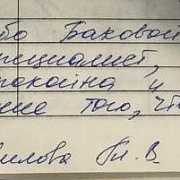 бо Баковой
пециалист,
покойна и
ме того, чт
илова Гл. В